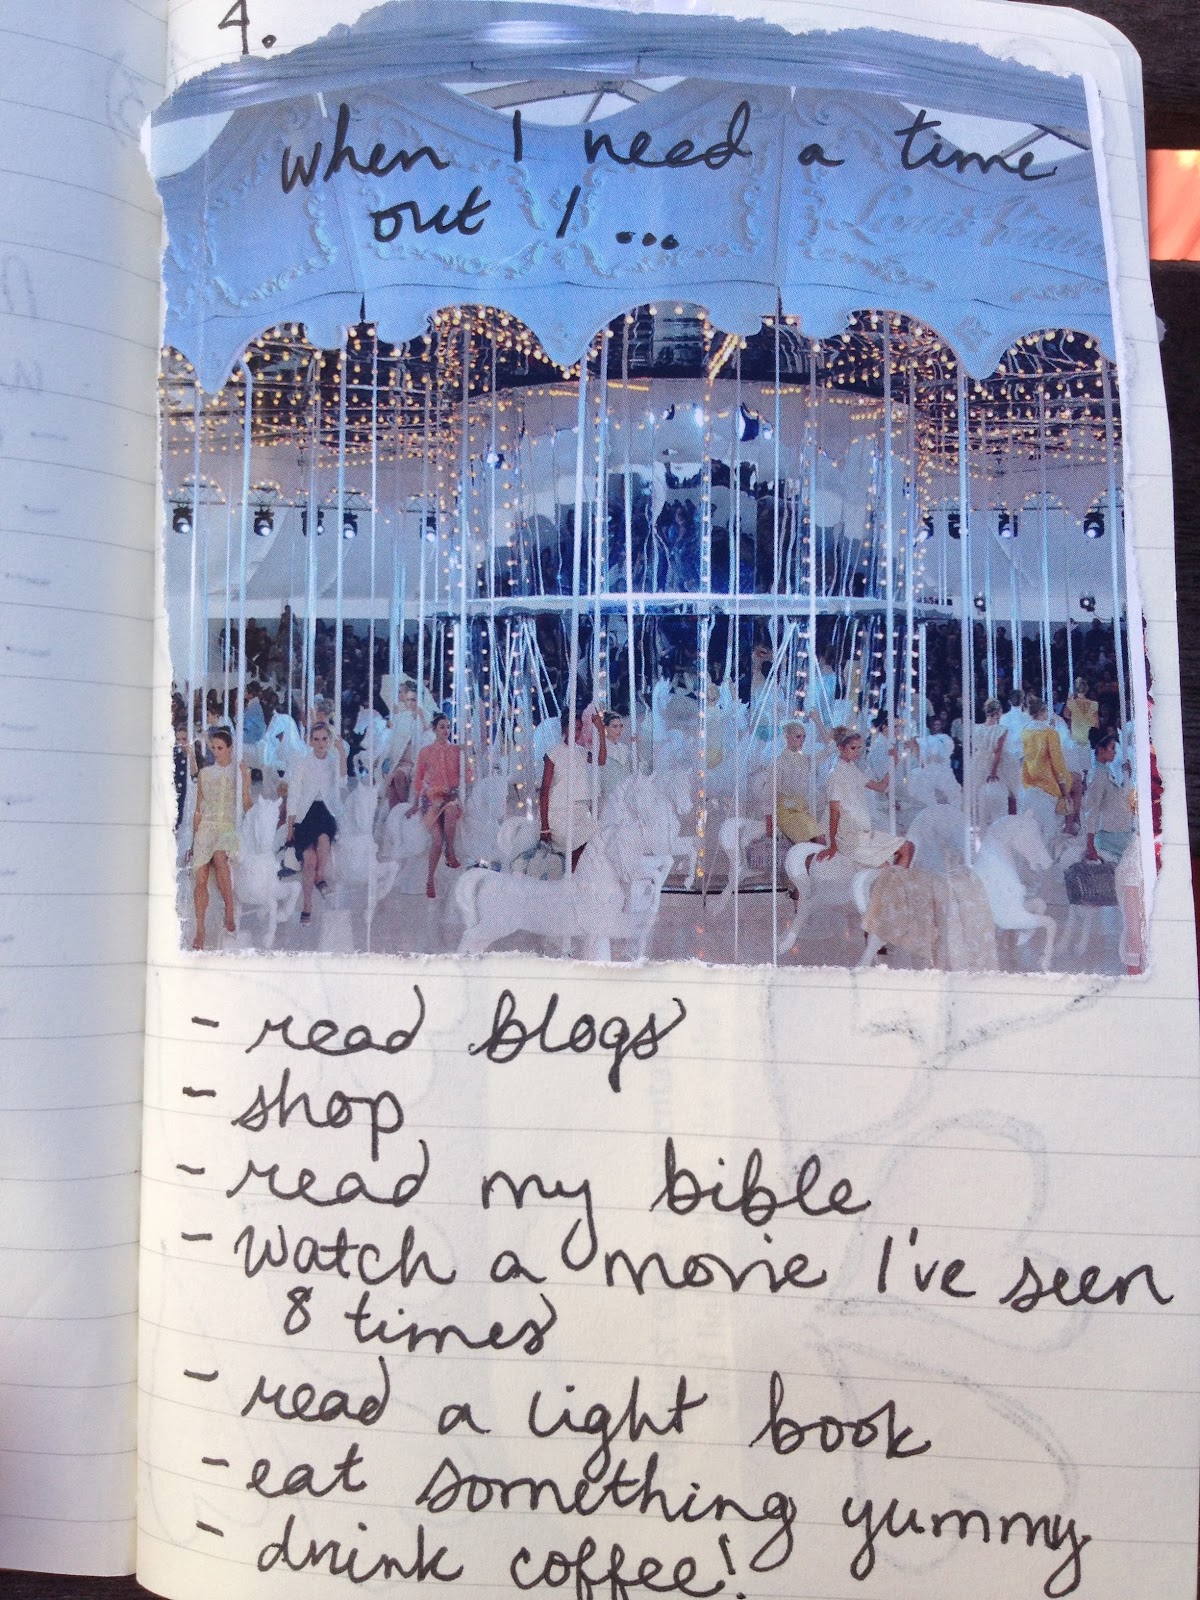 4.
when I need a time
out I ...
Louis Vuitton
- read blogs
- shop
- read my bible
- watch a movie I've seen
8 times
- read a light book
- eat something yummy
- drink coffee!